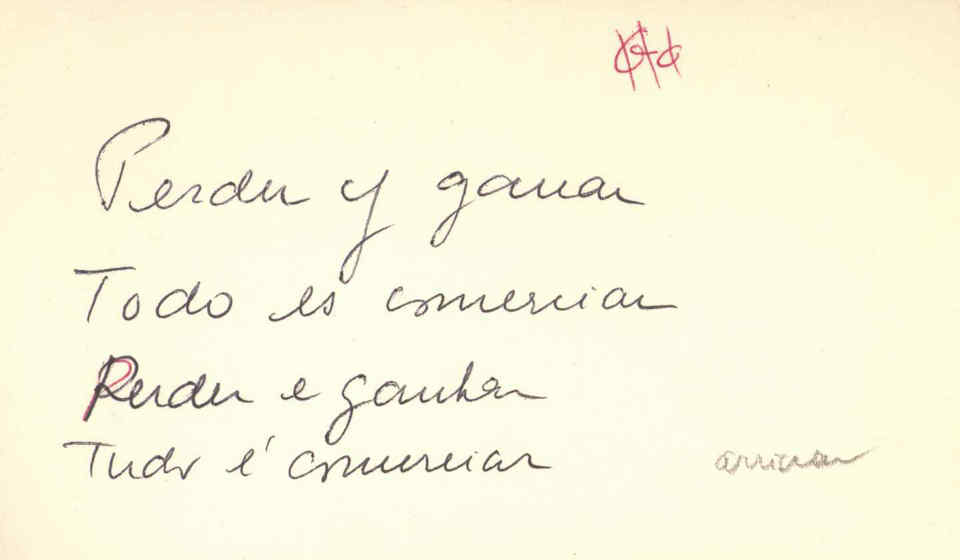 Perder y ganar
Todo es comerciar
Perder e ganhar
Tudo é comerciar